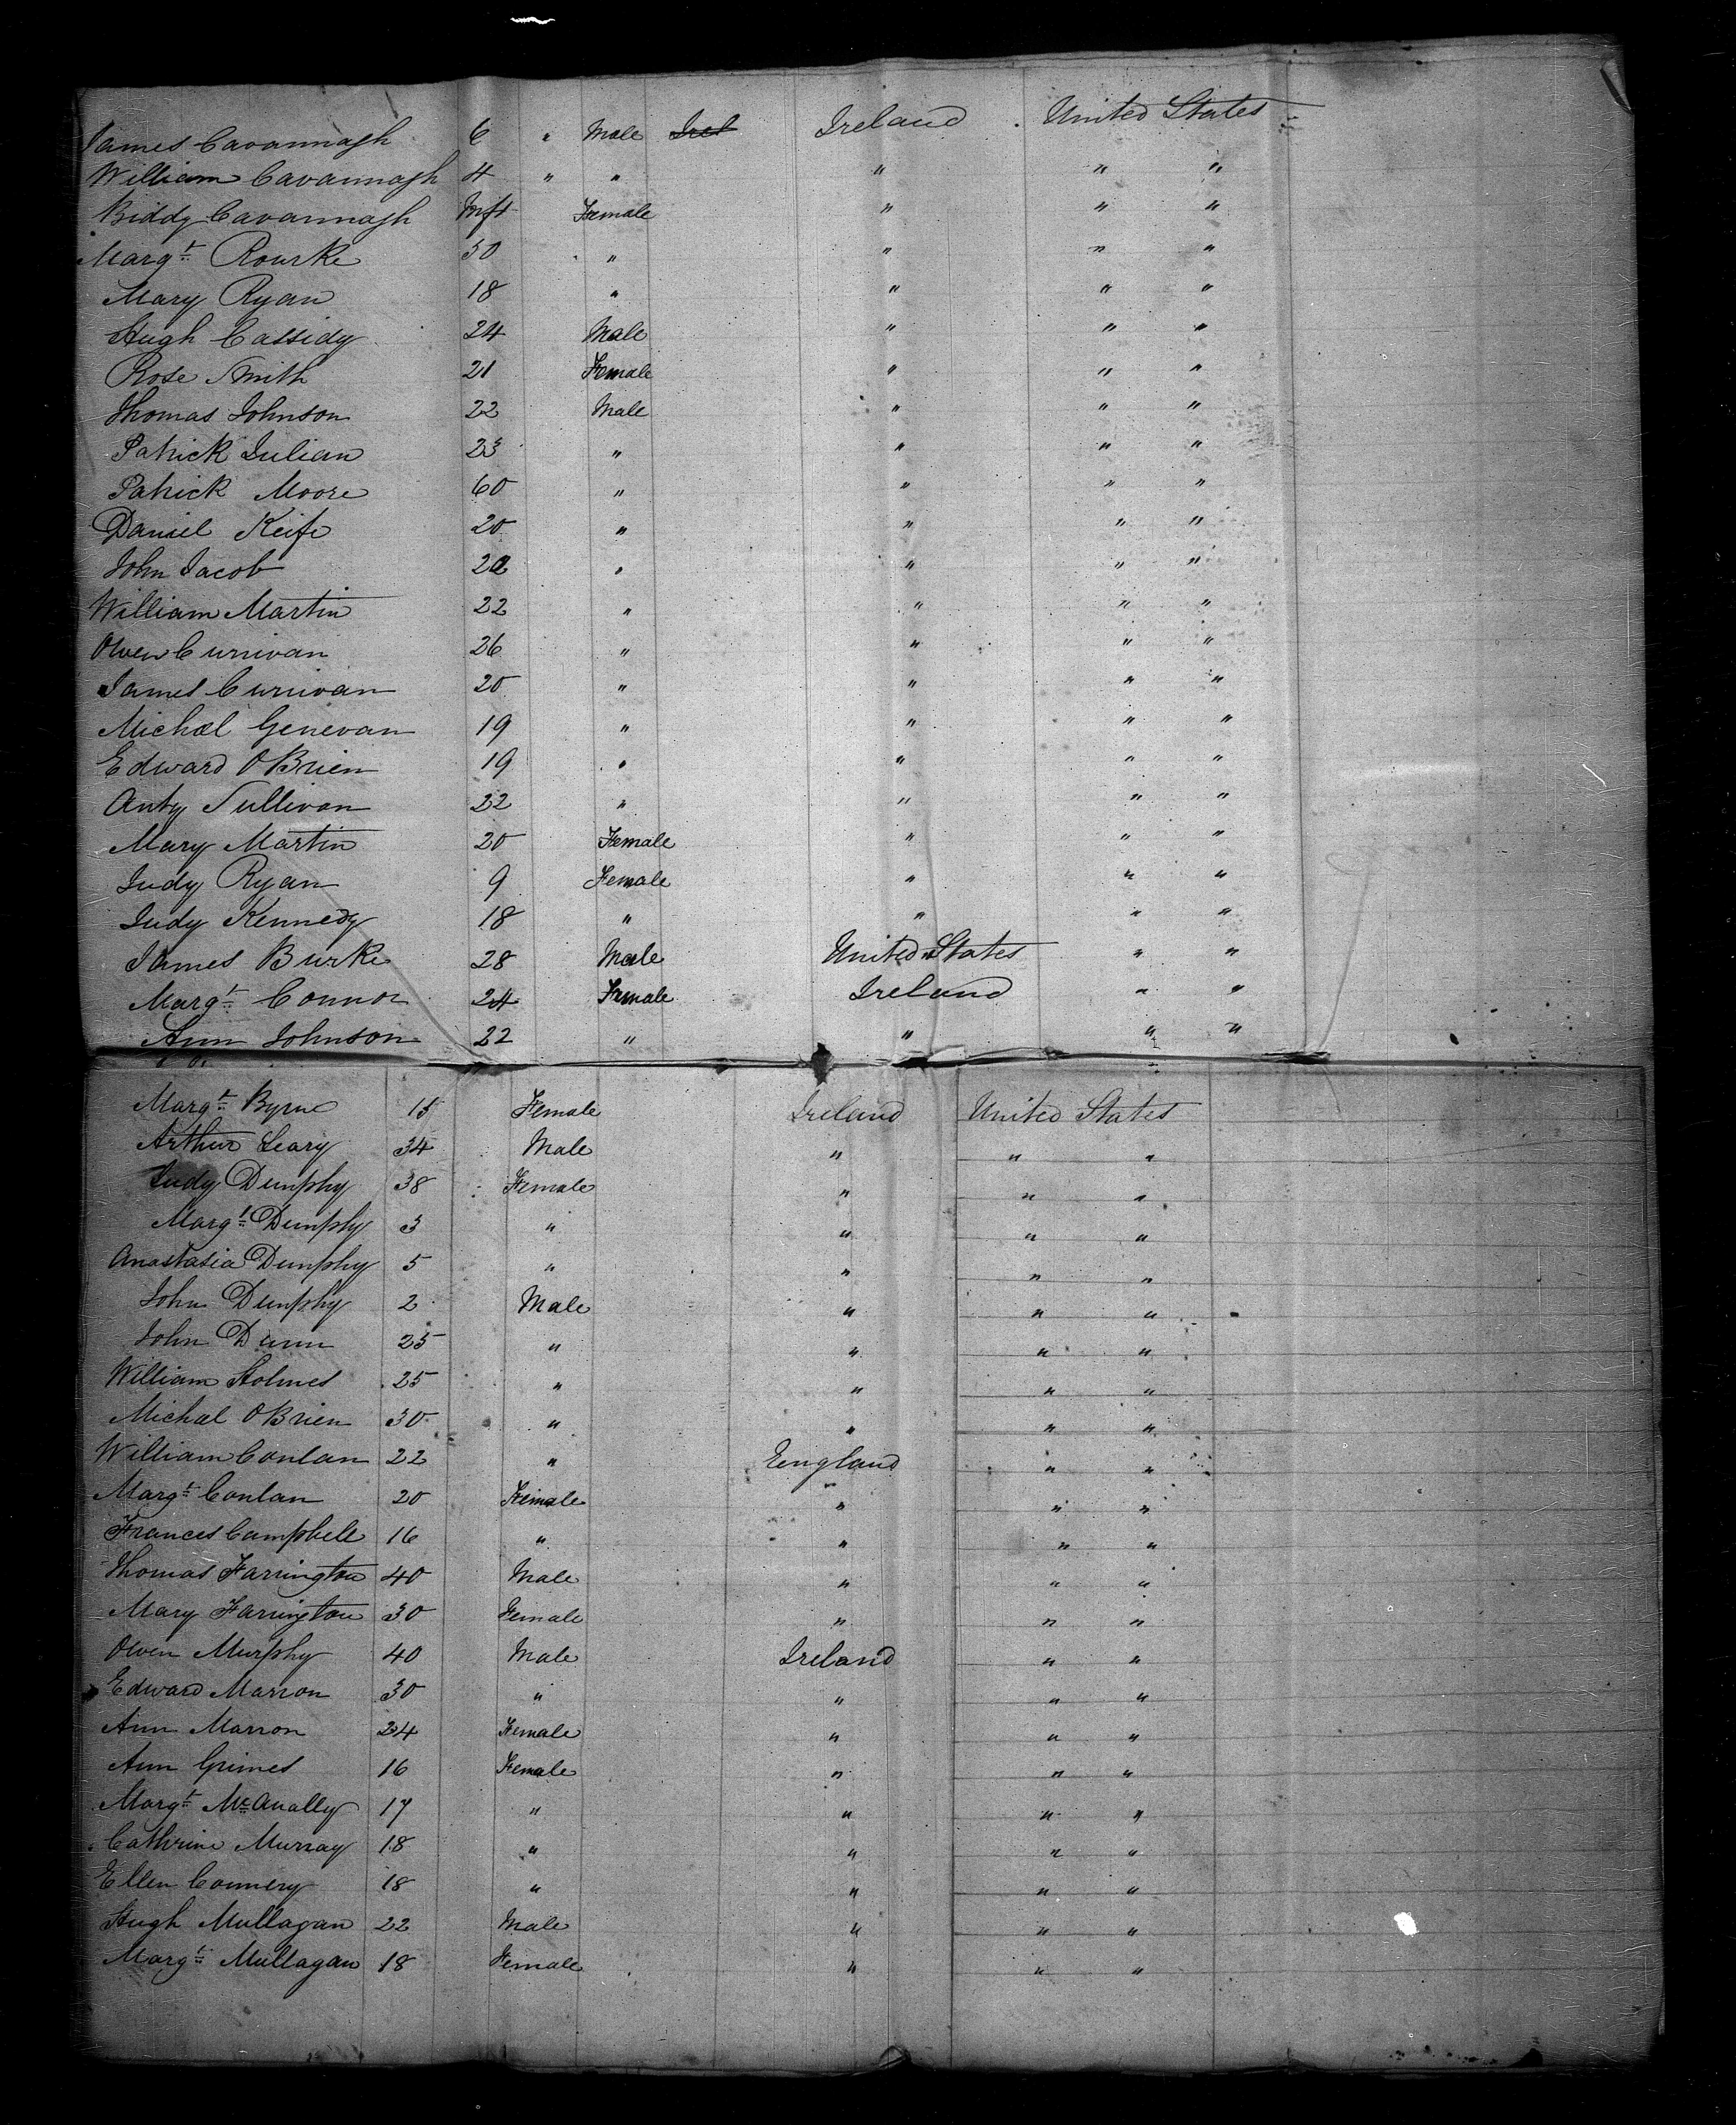 James Cavannagh 6 " Male Irel Ireland United States
William Cavannagh 4 " " " " "
Biddy Cavannagh Inft Female " " "
Margt Rourke 30 " " " "
Mary Ryan 18 " " " "
Hugh Cassidy 24 Male " " "
Rose Smith 21 Female " " "
Thomas Johnson 22 Male " " "
Patrick Julian 23 " " " "
Patrick Moore 60 " " " "
Daniel Keife 20 " " " "
John Jacob 22 " " " "
William Martin 22 " " " "
Owen Curnivan 26 " " " "
James Curnivan 20 " " " "
Michael Genevan 19 " " " "
Edward OBrien 19 " " " "
Anty Sullivan 22 " " " "
Mary Martin 20 Female " " "
Judy Ryan 9 Female " " "
Judy Kennedy 18 " " " "
James Burke 28 Male United States " "
Margt Connor 24 Female Ireland " "
Ann Johnson 22 " " " "
Margt Byrne 15 Female Ireland United States
Arthur Leary 34 Male " " "
Judy Dunphy 38 Female " " "
Margt Dunphy 3 " " " "
Anastasia Dunphy 5 " " " "
John Dunphy 2 Male " " "
John Dunn 25 " " " "
William Holmes 25 " " " "
Michal OBrien 30 " " " "
William Conlan 22 " England " "
Margt Conlan 20 Female " " "
Frances Campbell 16 " " " "
Thomas Farrington 40 Male " " "
Mary Farrington 30 Female " " "
Owen Murphy 40 Male Ireland " "
Edward Marron 30 " " " "
Ann Marron 24 Female " " "
Ann Grimes 16 Female " " "
Margt McAnally 17 " " " "
Cathrine Murray 18 " " " "
Ellen Connery 18 " " " "
Hugh Mullagan 22 Male " " "
Margt Mullagan 18 Female " " "